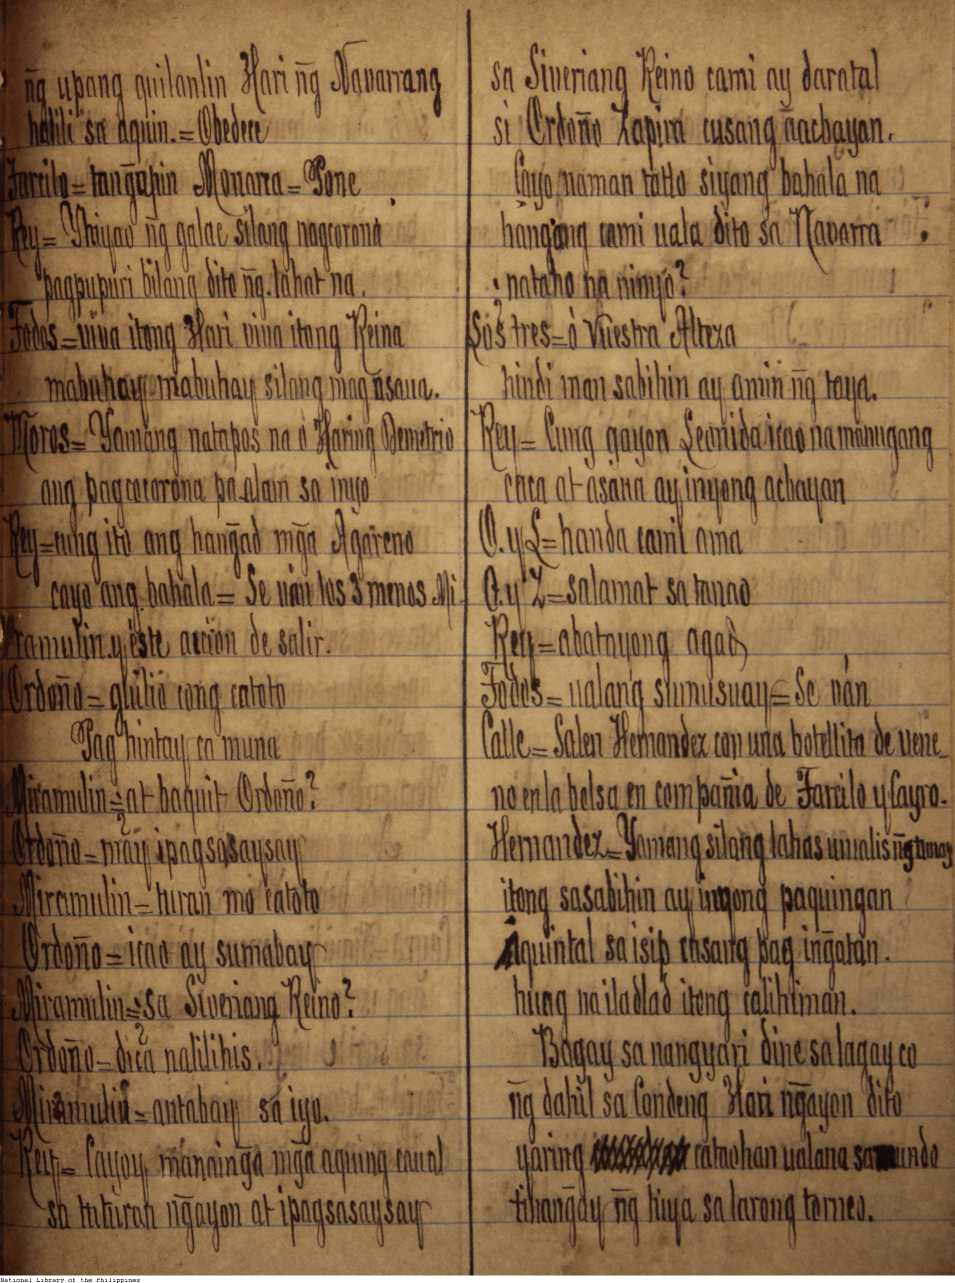 n̄g upang quilanlin Hari n̄g Navarrang
habili sa aquin.=Obedece
Farrilo=tan̄gapin Monarra=Pone
Rey= Itayao n̄g galac silang nagcorona
pagpupuri bilang dito n̄g lahat na.
Todos=viva itong Hari viva itong Reina
mabuhay mabuhay silang mag asaua.
Moros= Yamang natapos na ó Haring Demetrio
ang pagcocorona pa alam sa inyo
Rey=cung ito ang han̄gad mn̄ga Agareno
cayo ang bahala= Se ván los 3 menos Mi
ramulin y éste accion de salir.
Ordoño= guilio cong catoto
Pag hintay ca muna
Miramulin=at baquit Ordoño?
Ordoño=may ipagsasaysay
Miramulin=turan mo catoto
Ordoño=icao ay sumabay
Miramulin=sa Siveriang Reino?
Ordoño=dica nalilihis.
Miramulin=antabay sa iyo.
Rey= Cayoy, manain̄ga mn̄ga aquing caual
sa tuturan n̄gayon at ipagsasaysay
sa Siveriang Reino cami ay daratal
si Ordoño Zapira cusang aachayan.
Cayo naman tatlo siyang bahala na
hangang cami uala dito sa Navarra
natano na ninyo?
Los tres=ó Vuestra Alteza
hindi man sabihin ay amin n̄g taya.
Rey= Cung gayon Leonida icao na manugang
cica at asaua ay inyong achayan
O. y L=handa cami ama
O. y Z=salamat sa tanao
Rey=abatayong agad
Todos=ualang sumusuay= Se ván
Calle= Salen Hernandez con una botellita de vene_
no en la bolsa en compañia de Farrilo y Cayro.
Hernandez= Yamang silang lahas umalis n̄g tunay
itong sasabihin ay inyong paquingan
Aquintal sa isip cusang pag in̄gatan.
huag na iladlad itong calihiman.
Bagay sa nangyari dine sa lagay co
n̄g dahil sa Condeng Hari n̄gayon dito
yaring catauhan ualana sa mundo
tihan̄gay n̄g hiya sa larong torneo.
National Library of the Philippines